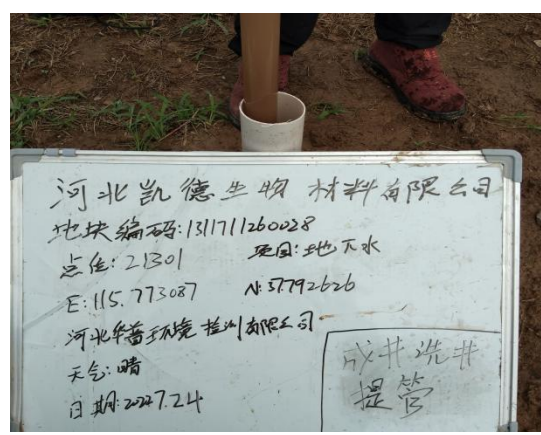 河北凯德生物材料有限公司
地块编码:1311711260028
点位: 2J301 项目:地下水
E:115.773087 N:37.792626
河北华普环境检测有限公司
天气:晴
日期:2024.7.24
成井洗井
提管